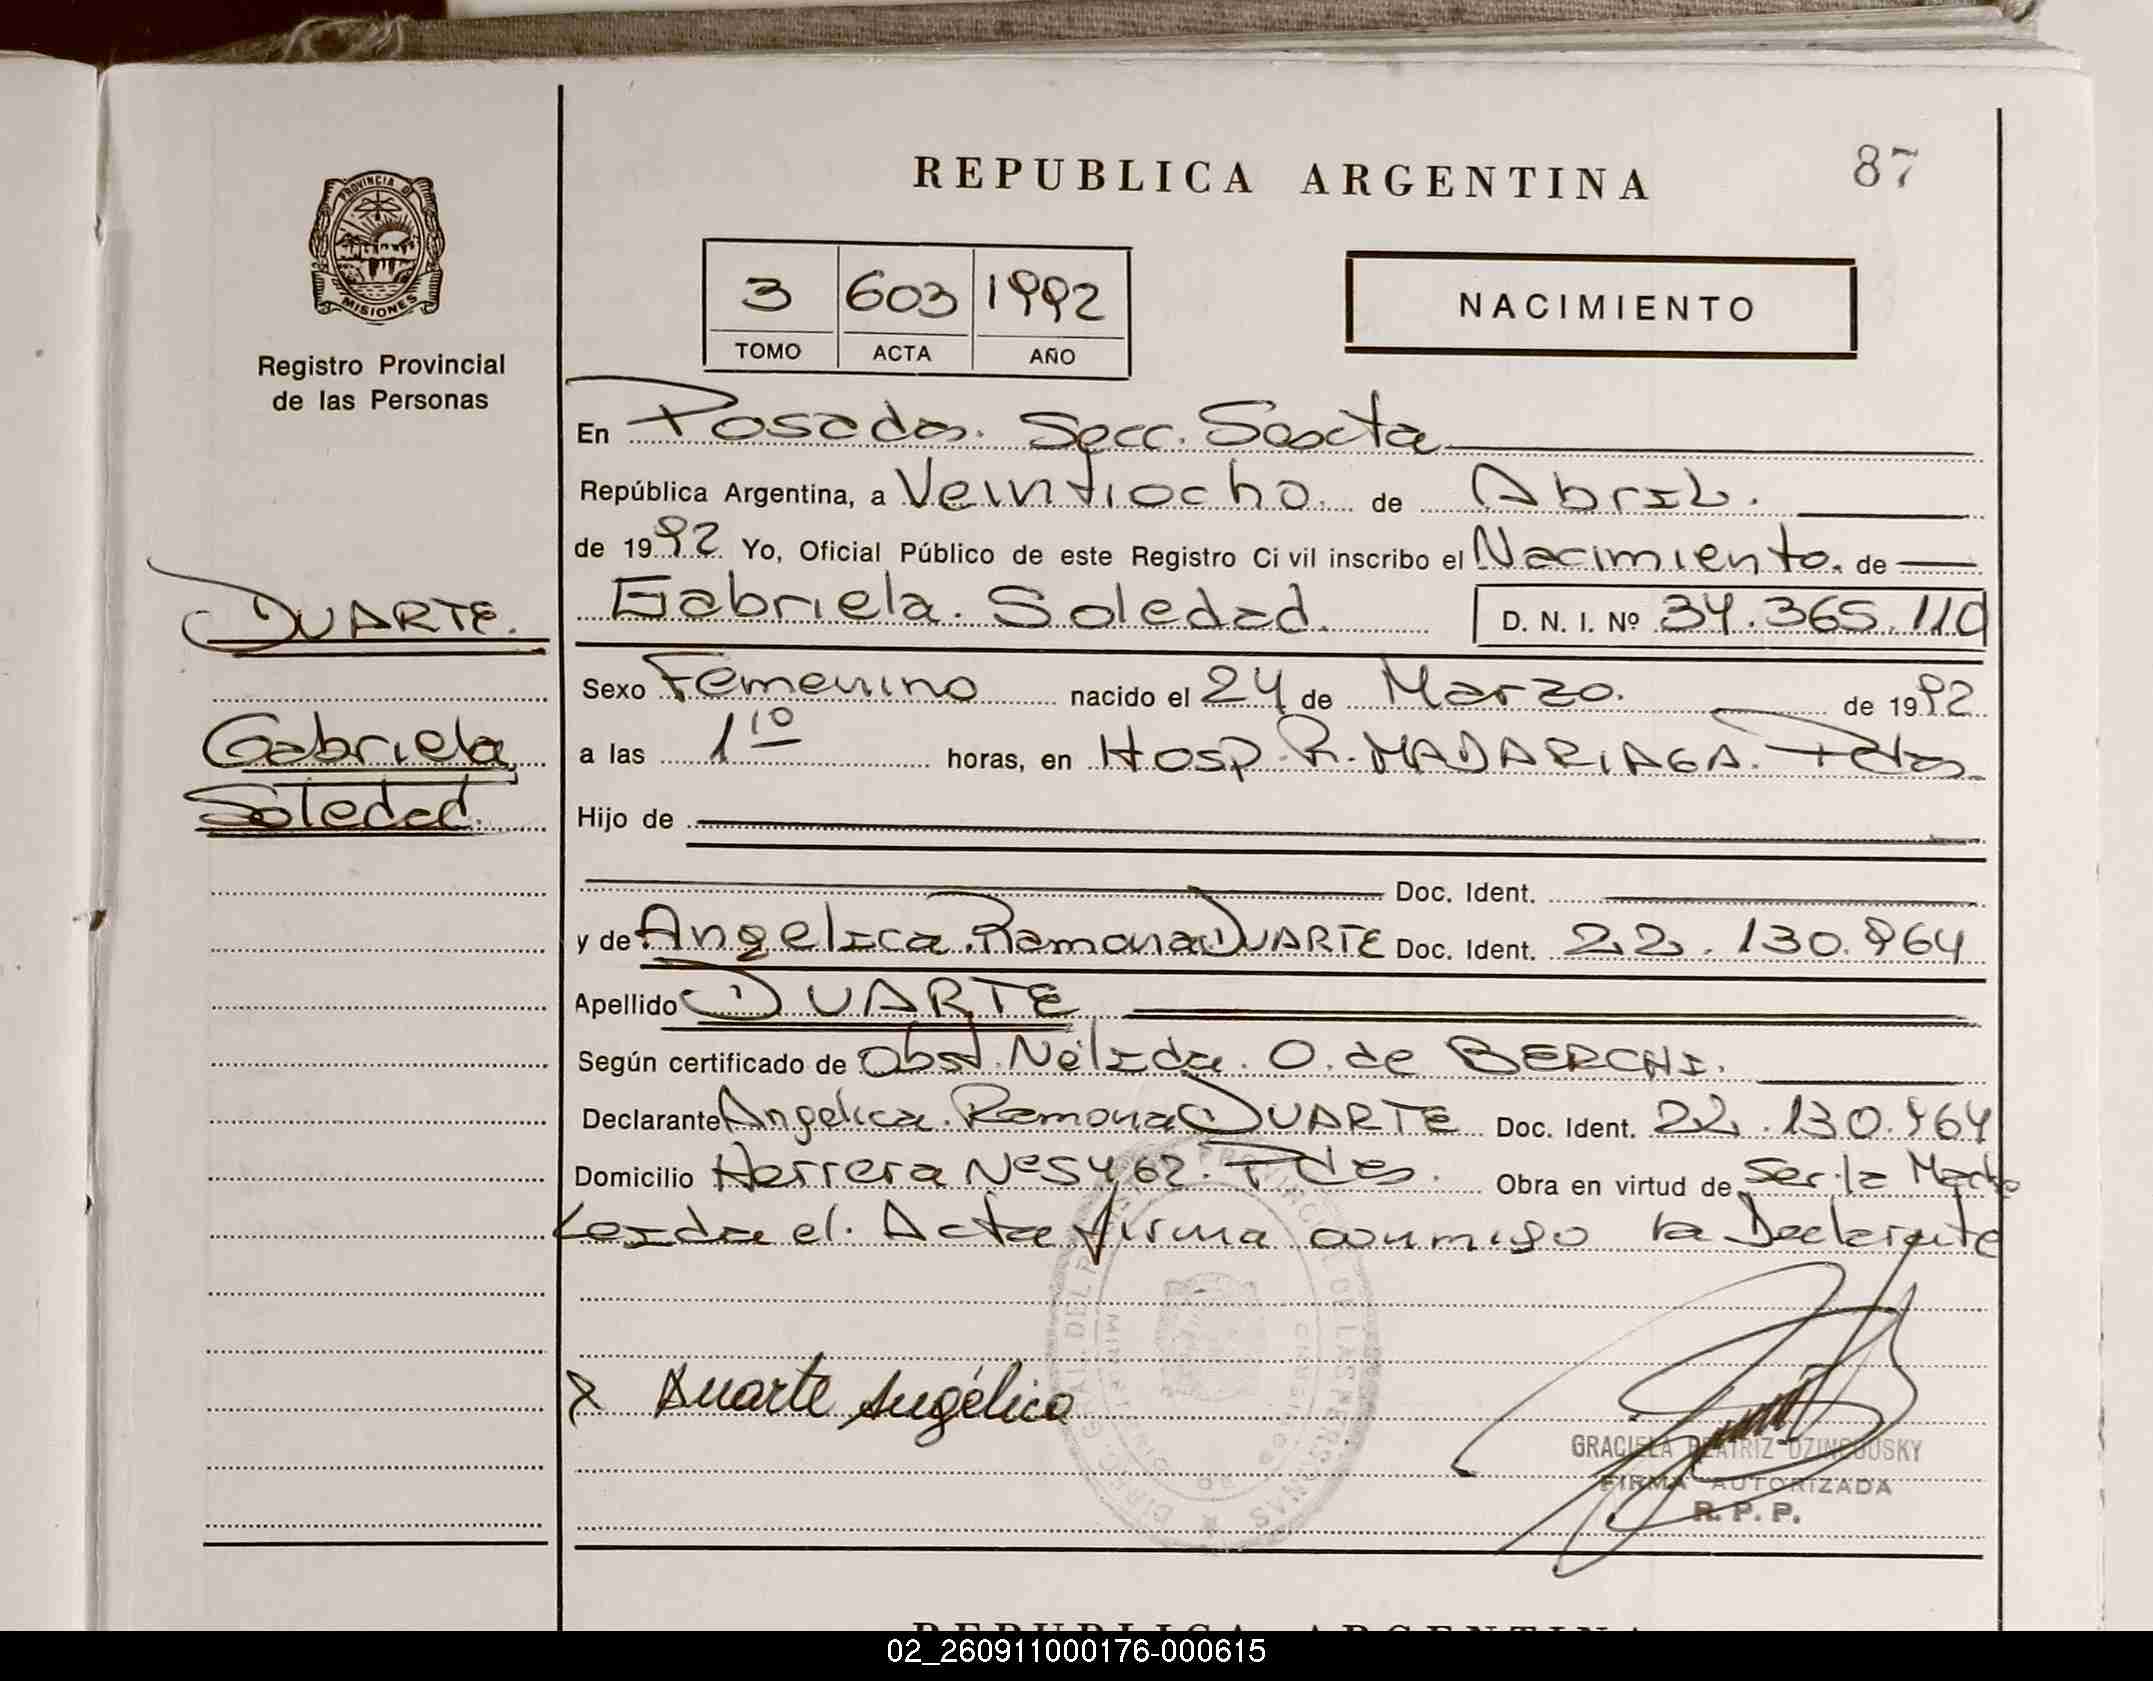 REPUBLICA ARGENTINA
87
PROVINCIA DE
MISIONES
Registro Provincial
de las Personas
3 603 1992
TOMO ACTA AÑO
NACIMIENTO
En Posadas. Secc. Sexta
República Argentina, a Veintiocho. de Abril.
de 1992 Yo, Oficial Público de este Registro Ci vil inscribo el Nacimiento. de
Gabriela. Soledad. D. N. I. Nº 34.365.110
DUARTE.
Gabriela
Soledad.
Sexo Femenino nacido el 24 de Marzo. de 1992
a las 1 10 horas, en Hosp. R. MADARIAGA. Pdas.
Hijo de
Doc. Ident.
y de Angelica. Ramona DUARTE Doc. Ident. 22.130.964
Apellido DUARTE
Según certificado de Obst. Nélida. O. de BERCHI.
Declarante Angelica. Ramona DUARTE Doc. Ident. 22.130.964
Domicilio Herrera Nº 5462. Pdas. Obra en virtud de Ser la Madre
Leida el. Acta firma conmigo la Declarante
x Duarte Angélica
GRACIELA BEATRIZ
FIRMA AUTORIZADA
R. P. P.
REPUBLICA ARGENTINA
02_260911000176-000615